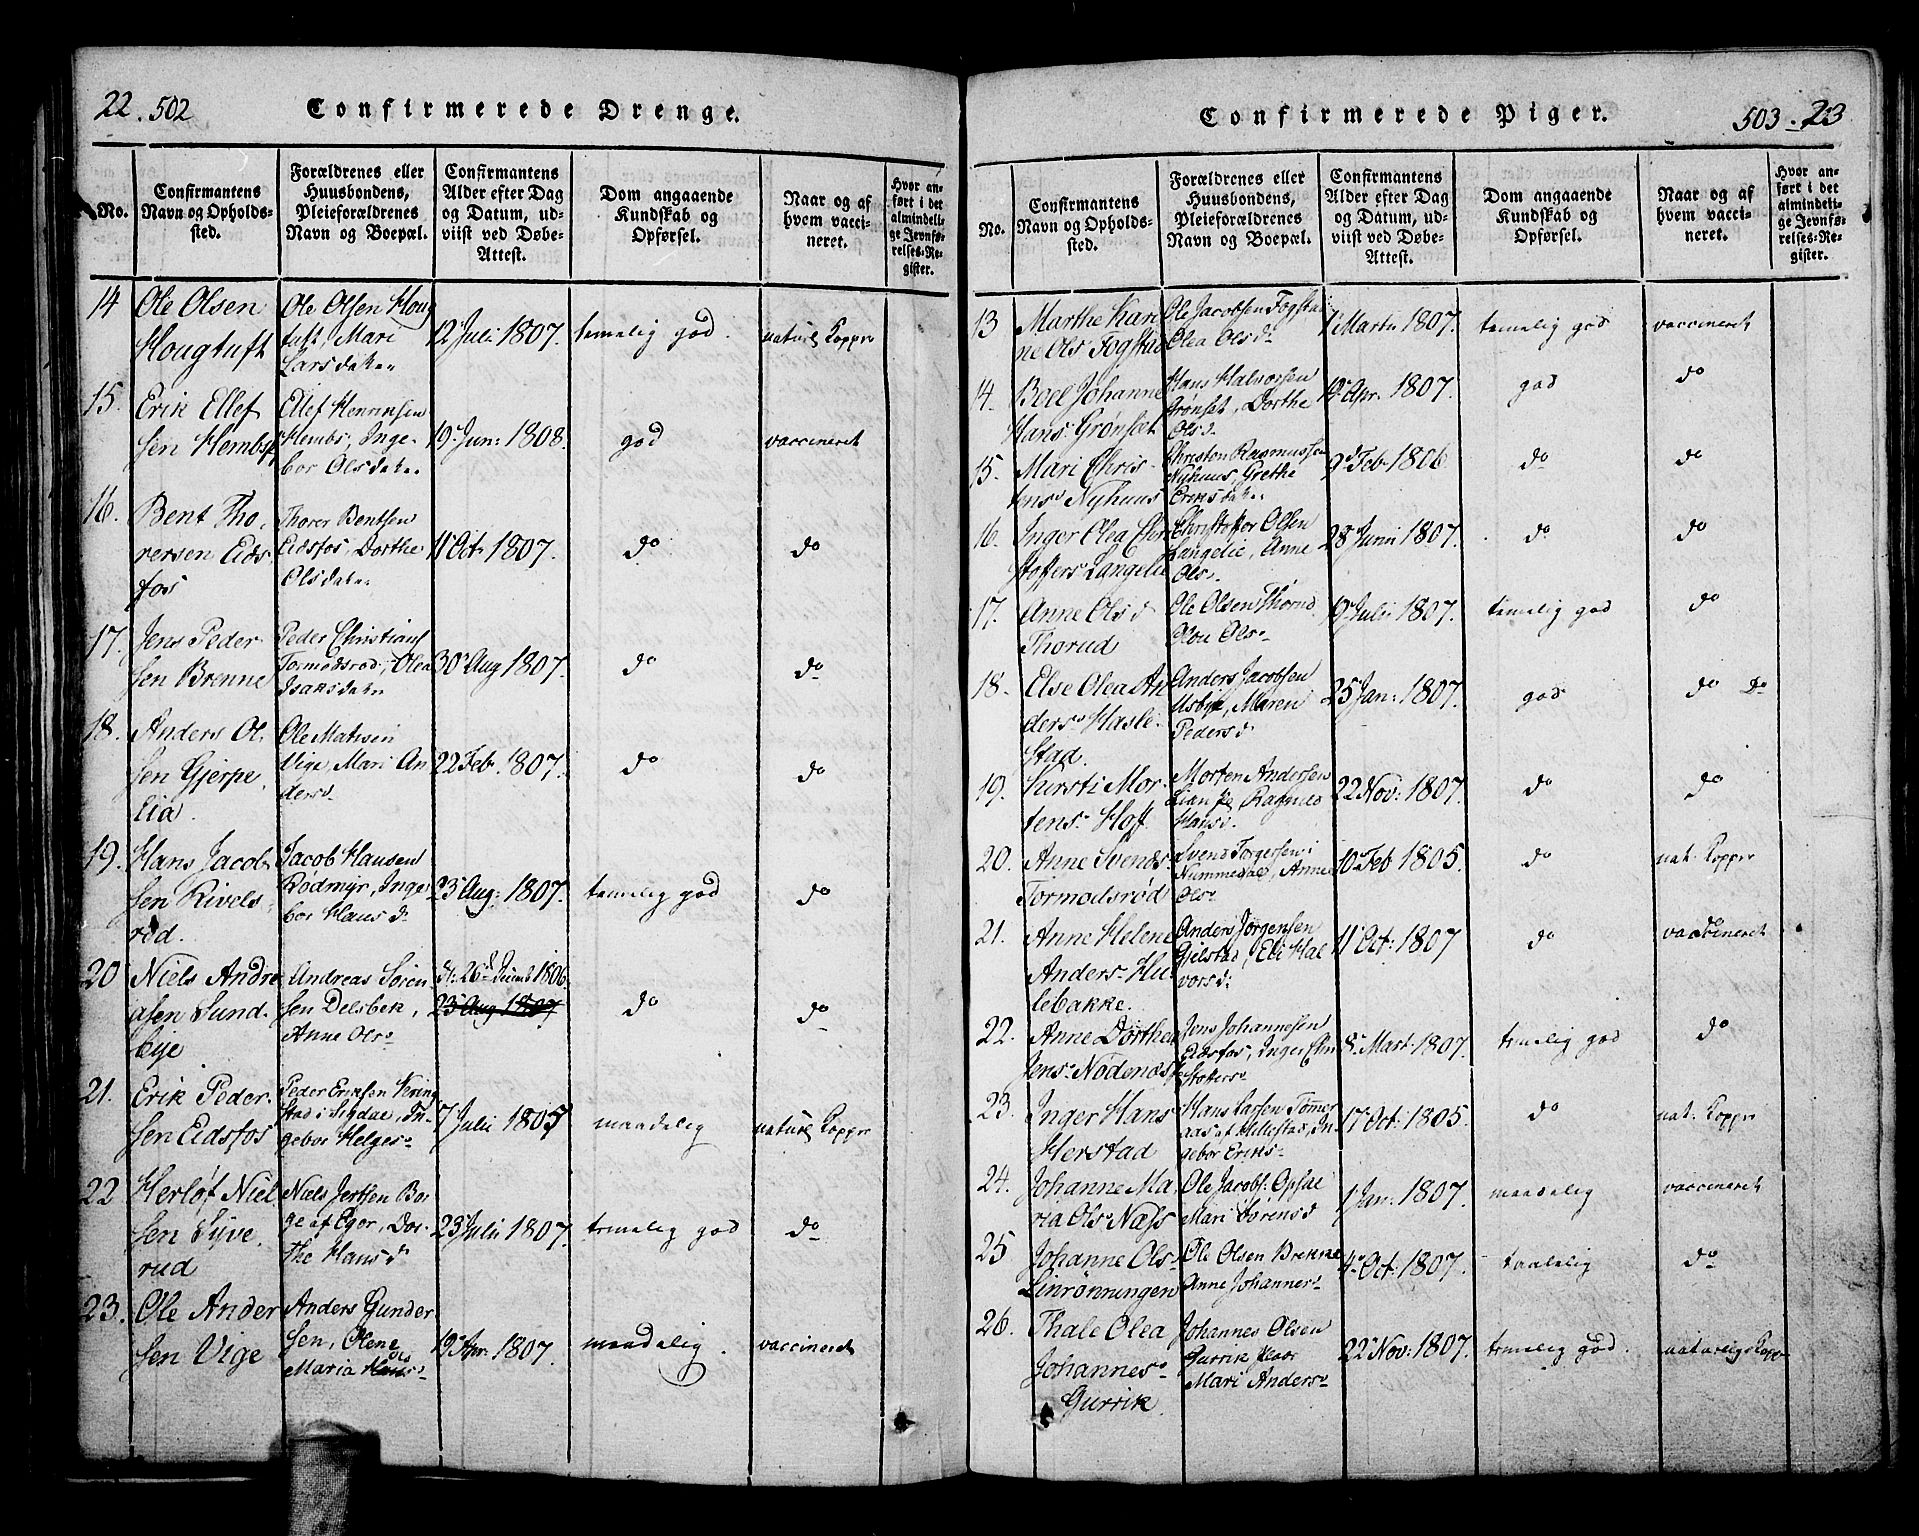 22. 502
Confirmerede Drenge.
No.
Confirmantens
Navn og Opholds-
sted.
Forældrenes eller
Huusbondens,
Pleieforældrenes
Navn og Boepæl.
Confirmantens
Alder efter Dag
og Datum, ud-
viist ved Døbe-
Attest.
Dom angaaende
Kundskab og
Opførsel.
Naar og af
hvem vacci-
neret.
Hvor an-
ført i det
almindeli-
ge Jevnfø-
relses-Re-
gister.
14
Ole Olsen
Hougtuft
Ole Olsen Houg
tuft, Mari
Larsdate
12 Juli 1807.
temelig god.
naturl Kopper
15.
Erik Ellef
sen Hembs
Ellef Henriksen
Hembs, Inge
bor Olsdate
19 Jun: 1808.
god
vaccineret
16.
Bent Tho
rersen Eids
fos
Thorer Bentsen
Eidsfos, Dorthe
Olsdate
11 Oct. 1807.
do
do
17.
Jens Peder
sen Brenne
Peder Christians
Tormodsrød, Olea
Isaksdate
30 Aug 1807.
do
do
18.
Anders Ol
sen Gjerpe
lia.
Ole Matisen
Vige, Mari An
ders
22 Feb. 1807.
do
do
19.
Hans Jacob
sen Rivels
rød.
Jacob Hansen
Rødmyr, Inge
bor Hans d
23 Aug: 1807.
temelig god
do
20
Niels Andre
asen Sund
bye
Andreas Søren
sen Delsbek,
Anne Ols
26 1806.
23 Aug 1807
do
do
21.
Erik Peder
sen Eidsfos
Peder Eriksen
stad i Sigdal, In
gebor Helges
7 Julii 1805
maadelig
naturl Kopper
22
Herløf Niel
sen Syve
rud
Niels Jersen Bor
ge af Eger, Dor
the Hans d
23 Julii 1807.
temelig god
do
23.
Ole Ander
sen Vige
Anders Gunder
sen, Olene
Maria
19 Apr. 1807.
maadelig.
vaccineret
Confirmerede Piger.
503. 23
No.
Confirmantens
Navn og Opholds-
sted.
Forældrenes eller
Huusbondens,
Pleieforældrenes
Navn og Boepæl.
Confirmantens
Alder efter Dag
og Datum, ud-
viist ved Døbe-
Attest.
Dom angaaende
Kundskab og
Opførsel.
Naar og af
hvem vacci-
neret.
Hvor an-
ført i det
almindeli-
ge Jevnfø-
relses-Re-
gister.
13
Marthe Kari
ne Ols Fogstad
Ole Jacobsen Fogstad
Olea Olsd
1 Martii 1807.
temelig god
vaccineret
14.
Boel Johanne
Hans Grønset
Hans Halvorsen
Grønset, Dorthe
Ols
12 Apr. 1807.
god
do
15.
Mari Chris
tens Nyhuus
Christen Rasmussen
Nyhuus, Grethe
Eriksdate
9d Feb 1806
do
do
16.
Inger Olea Chri
stoffers Langelie
Christoffer Olsen
Langelie, Anne
Ols
28 Junii 1807.
do
do
17.
Anne Ols d
Thorud
Ole Olsen Thorud
Ols
19 Julii 1807.
temelig god
do
18.
Else Olea An
ders Hasle
stad.
Anders Jacobsen
Usbye, Maren
Peders d
25 Jan: 1807.
god
do do
19.
Kirsti Mor
tens Hoff.
Morten Andersen
Lian, Ragnild
Hans d.
22 Nov: 1807.
do
do
20.
Anne Svends
Tormodsrød
Svend Torgersen i
Nummedal, Anne
Ols
10 Feb 1805.
do
nat. Kopper
21.
Anne Helene
Anders Hu
lebakke.
Anders Jørgensen
Gjelstad, Eli Hal
vors d.
11 Oct: 1807
do
do
vaccineret
22.
Anne Dorthea
Jens Nødenæs
Jens Johannesen
Eidsfos, Inger Chri
stoffers
8 Mart. 1807.
temelig god
do
23.
Inger Hans
Herstad
Hans Larsen Tømmer
aas af Hillestad, In
gebor Eriks
17 Oct: 1805.
do
nat. Kopper
24.
Johanne Ma
ria Ols Næss
Ole Jacobs: Opsal
Mari Sørens d
1 Jan. 1807.
maadelig
vaccineret
25
Johanne Ols
Linrønningen
Ole Olsen Brenne
Anne Johannes
4 Oct: 1807.
taalelig
do
26.
Thale Olea
Johannes
Gurrik
Johannes Olsen
Gurrik
Mari Anders
22 Nov: 1807.
temelig god.
naturlig Kopper